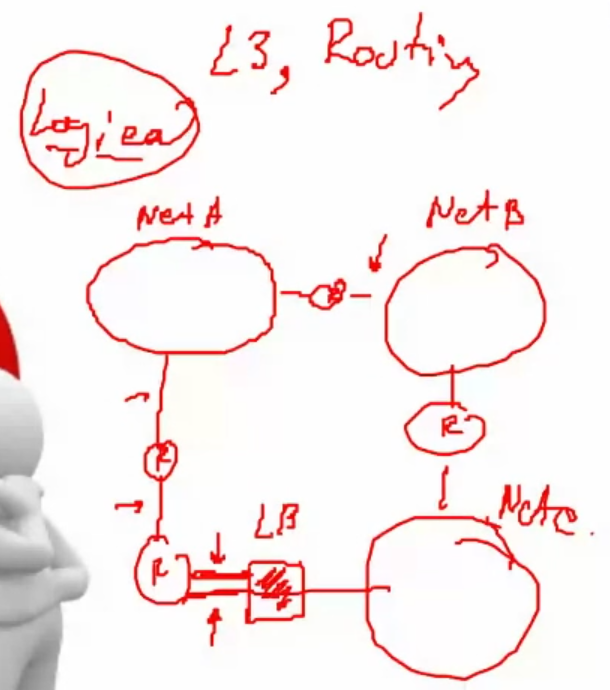 L3, Routing
Logical
Net A
Net B
R
R
R
LB
Net C.
R